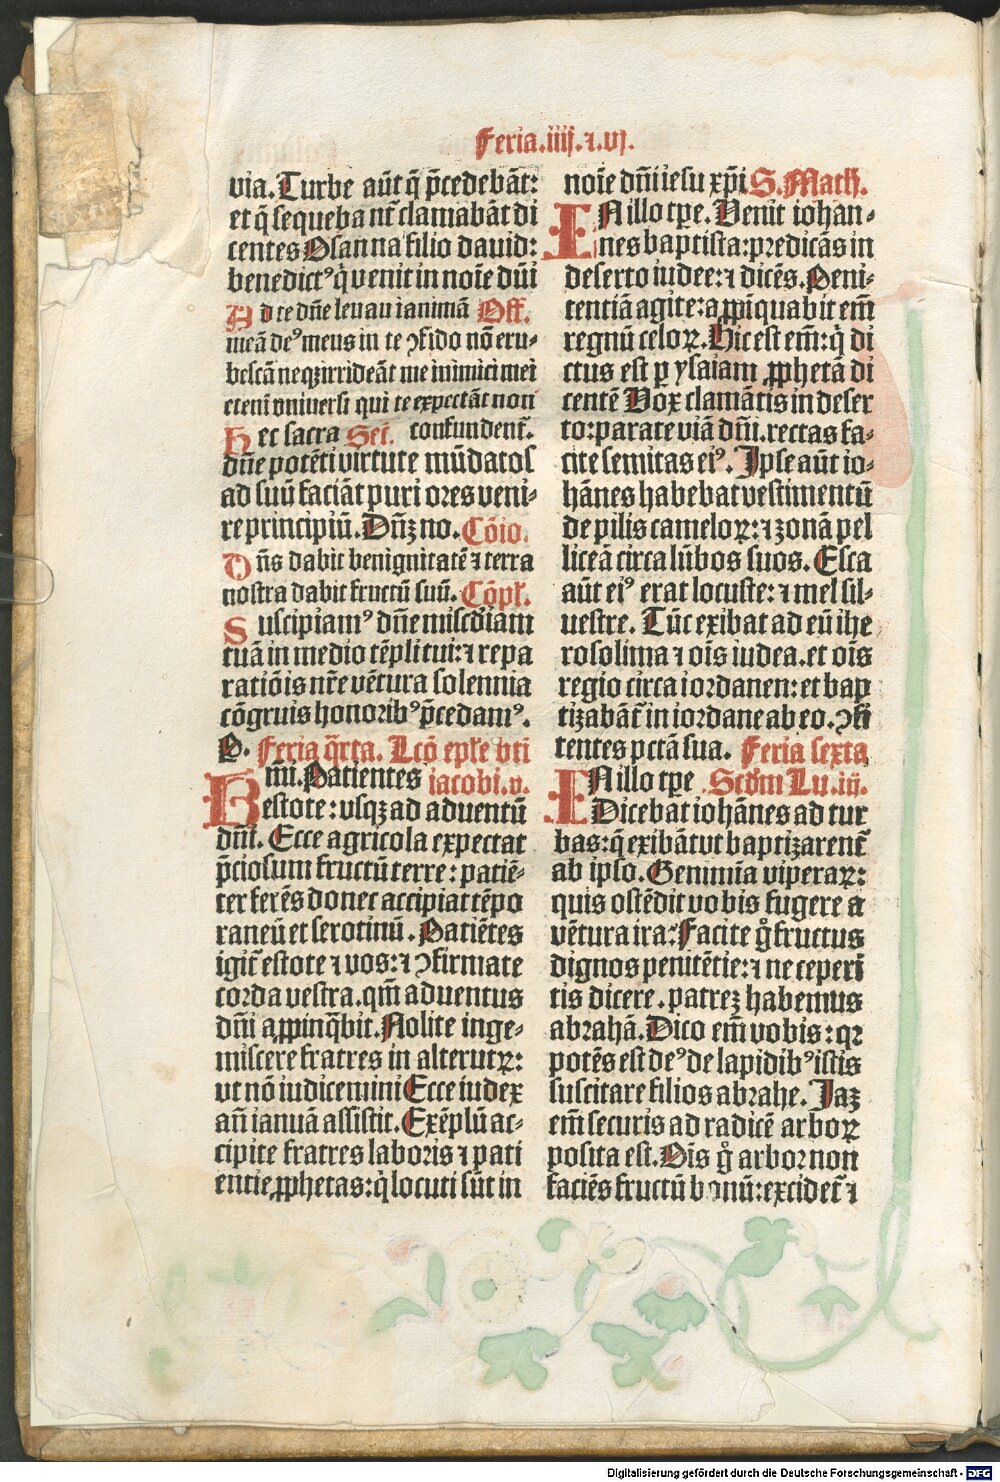 Feria.iiij.⁊.vj.
via.Turbe aūt q̄ p̄cedebāt:
et q̄ sequeban̄t clamabāt di
centes Osanna filio dauid:
benedictꝰ q̇ venit in noīe dn̄i
Ad te dn̄e leuaui animā Off.
meā deꝰ meus in te ꝯfido nō eru⸗
bescā neqꝫ irrideāt me inimici mei
eteni vniuersi qui te expectāt non
Hec sacra Sec̄. confundent̄.
dn̄e potēti virtute mūdatos
ad suū faciāt puri ores veni⸗
re principiū. Dn̄ꝫ no. Cōio.
Dn̄s dabit benignitatē ⁊ terra
nostra dabit fructū suū. Cōpl̄.
Suscipiamꝰ dn̄e miscd̄iam
tuā in medio tēpli tui: ⁊ repa
ratiōis nr̄e vētura solennia
cōgruis honoribꝰ p̄cedamꝰ.
P. Feria q̄rta. Lcō epl̄e bti
Patientes iacobi.v.
Estote: vsqꝫ ad aduentū
dn̄i. Ecce agricola expectat
p̄ciosum fructū terre: patiē⸗
ter ferēs donec accipiat tēpo
raneū et serotinū. Patiētes
igit̄ estote ⁊ vos: ⁊ ꝯfirmate
corda vestra. qm̄ aduentus
dn̄i appinq̄bit. Nolite inge⸗
miscere fratres in alterutꝝ:
vt nō iudicemini Ecce iudex
an̄ ianuā assistit. Exēplū ac⸗
cipite fratres laboris ⁊ pati
entie ꝓphetas: q̇ locuti sūt in
noīe dn̄i iesu xp̄i. S. Math.
IN illo tꝑe. Venit iohan⸗
nes baptista: predicās in
deserto iudee: ⁊ dicēs. Peni⸗
tentiā agite: appīquabit em̄
regnū celoꝝ. Hic est em̄: q̇ di
ctus est ꝑ ysaiam ꝓphetā di
centē Vox clamātis in deser
to: parate viā dn̄i. rectas fa⸗
cite semitas eiꝰ. Ipse aūt io⸗
hānes habebat vestimentū
de pilis cameloꝝ: ⁊ zonā pel
liceā circa lūbos suos. Esca
aūt eiꝰ erat locuste: ⁊ mel sil⸗
uestre. Tūc exibat ad eū ihe
rosolima ⁊ oīs iudea. et oīs
regio circa iordanen: et bap
tizabāt̄ in iordane ab eo. ꝯfi
tentes pctā sua. Feria sexta
IN illo tꝑe Scd̄m Lu. iij.
Dicebat iohānes ad tur
bas: q̄ exibāt vt baptizarent̄
ab ipso. Genimīa viperaꝝ:
quis ostēdit vobis fugere a
vētura ira: Facite g̊ fructus
dignos penitētie: ⁊ ne ceperi
tis dicere. patreꝫ habemus
abrahā. Dico em̄ vobis: qꝛ
potēs est deꝰ de lapidibꝰ istis
suscitare filios abrahe. Jaꝫ
em̄ securis ad radicē arboꝝ
posita est. Oīs g̊ arbor non
faciēs fructū bonū: excidet̄ ⁊
Digitalisierung gefördert durch die Deutsche Forschungsgemeinschaft - DFG